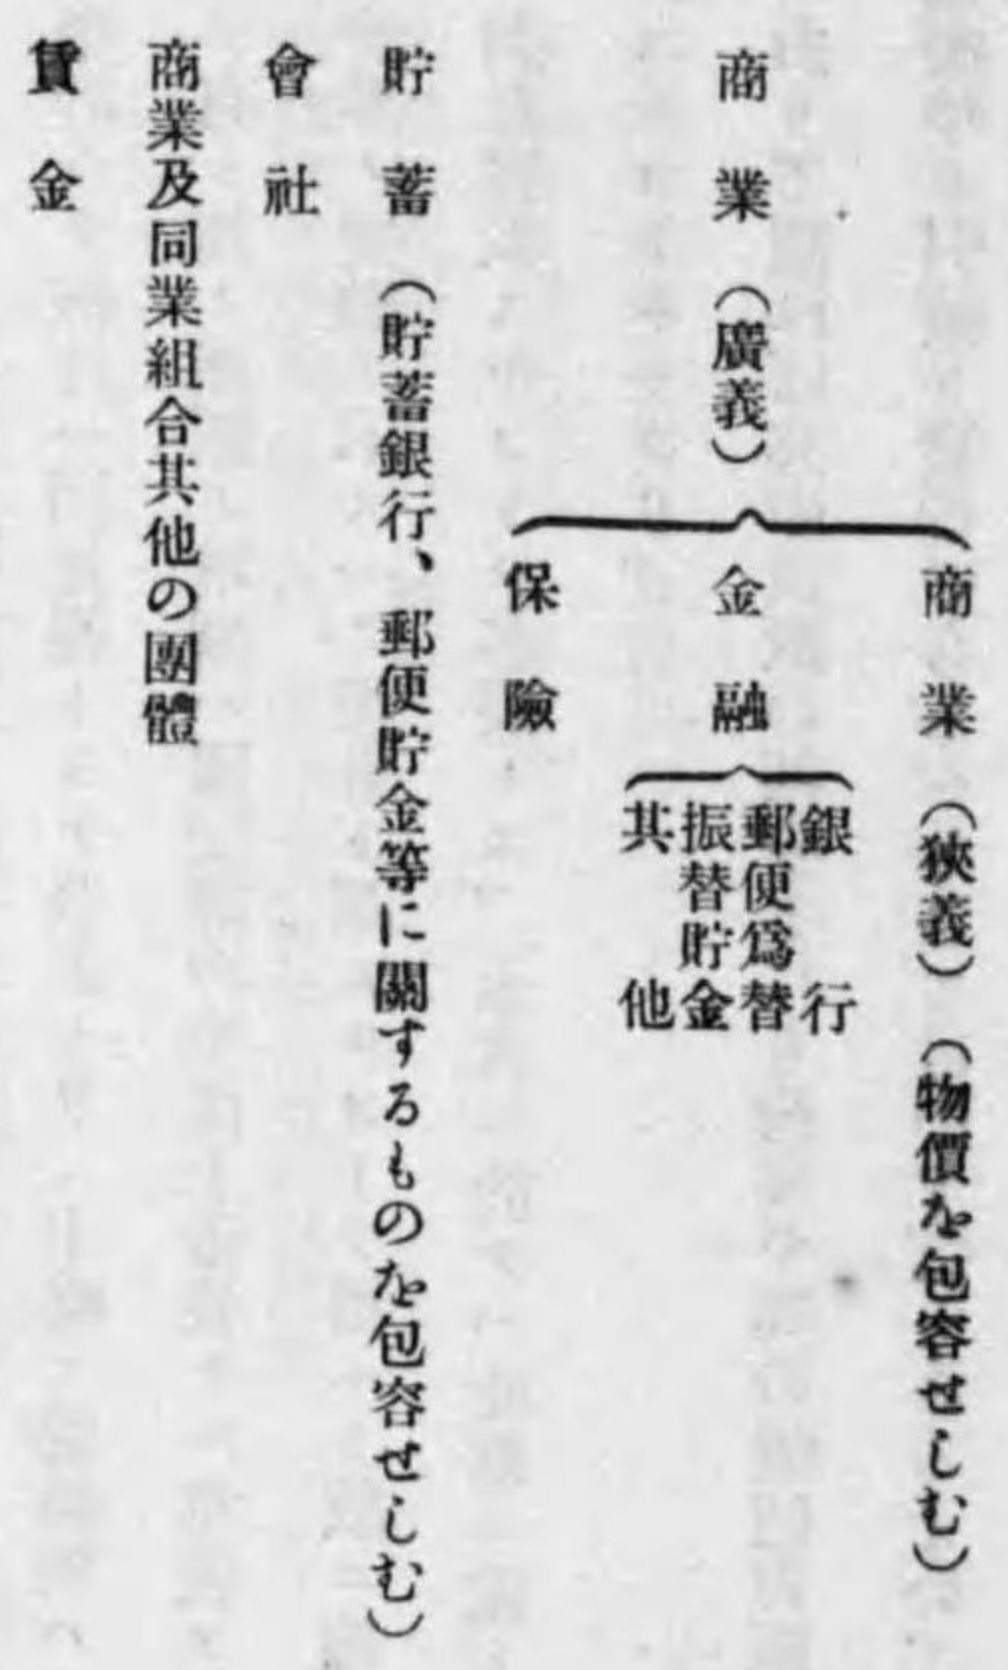 商業（廣義）
商業（狹義）（物價を包容せしむ）
金融
銀行
郵便爲替
振替貯金
其他
保險
貯蓄（貯蓄銀行、郵便貯金等に關するものを包容せしむ）
會社
商業及同業組合其他の團體
賃金